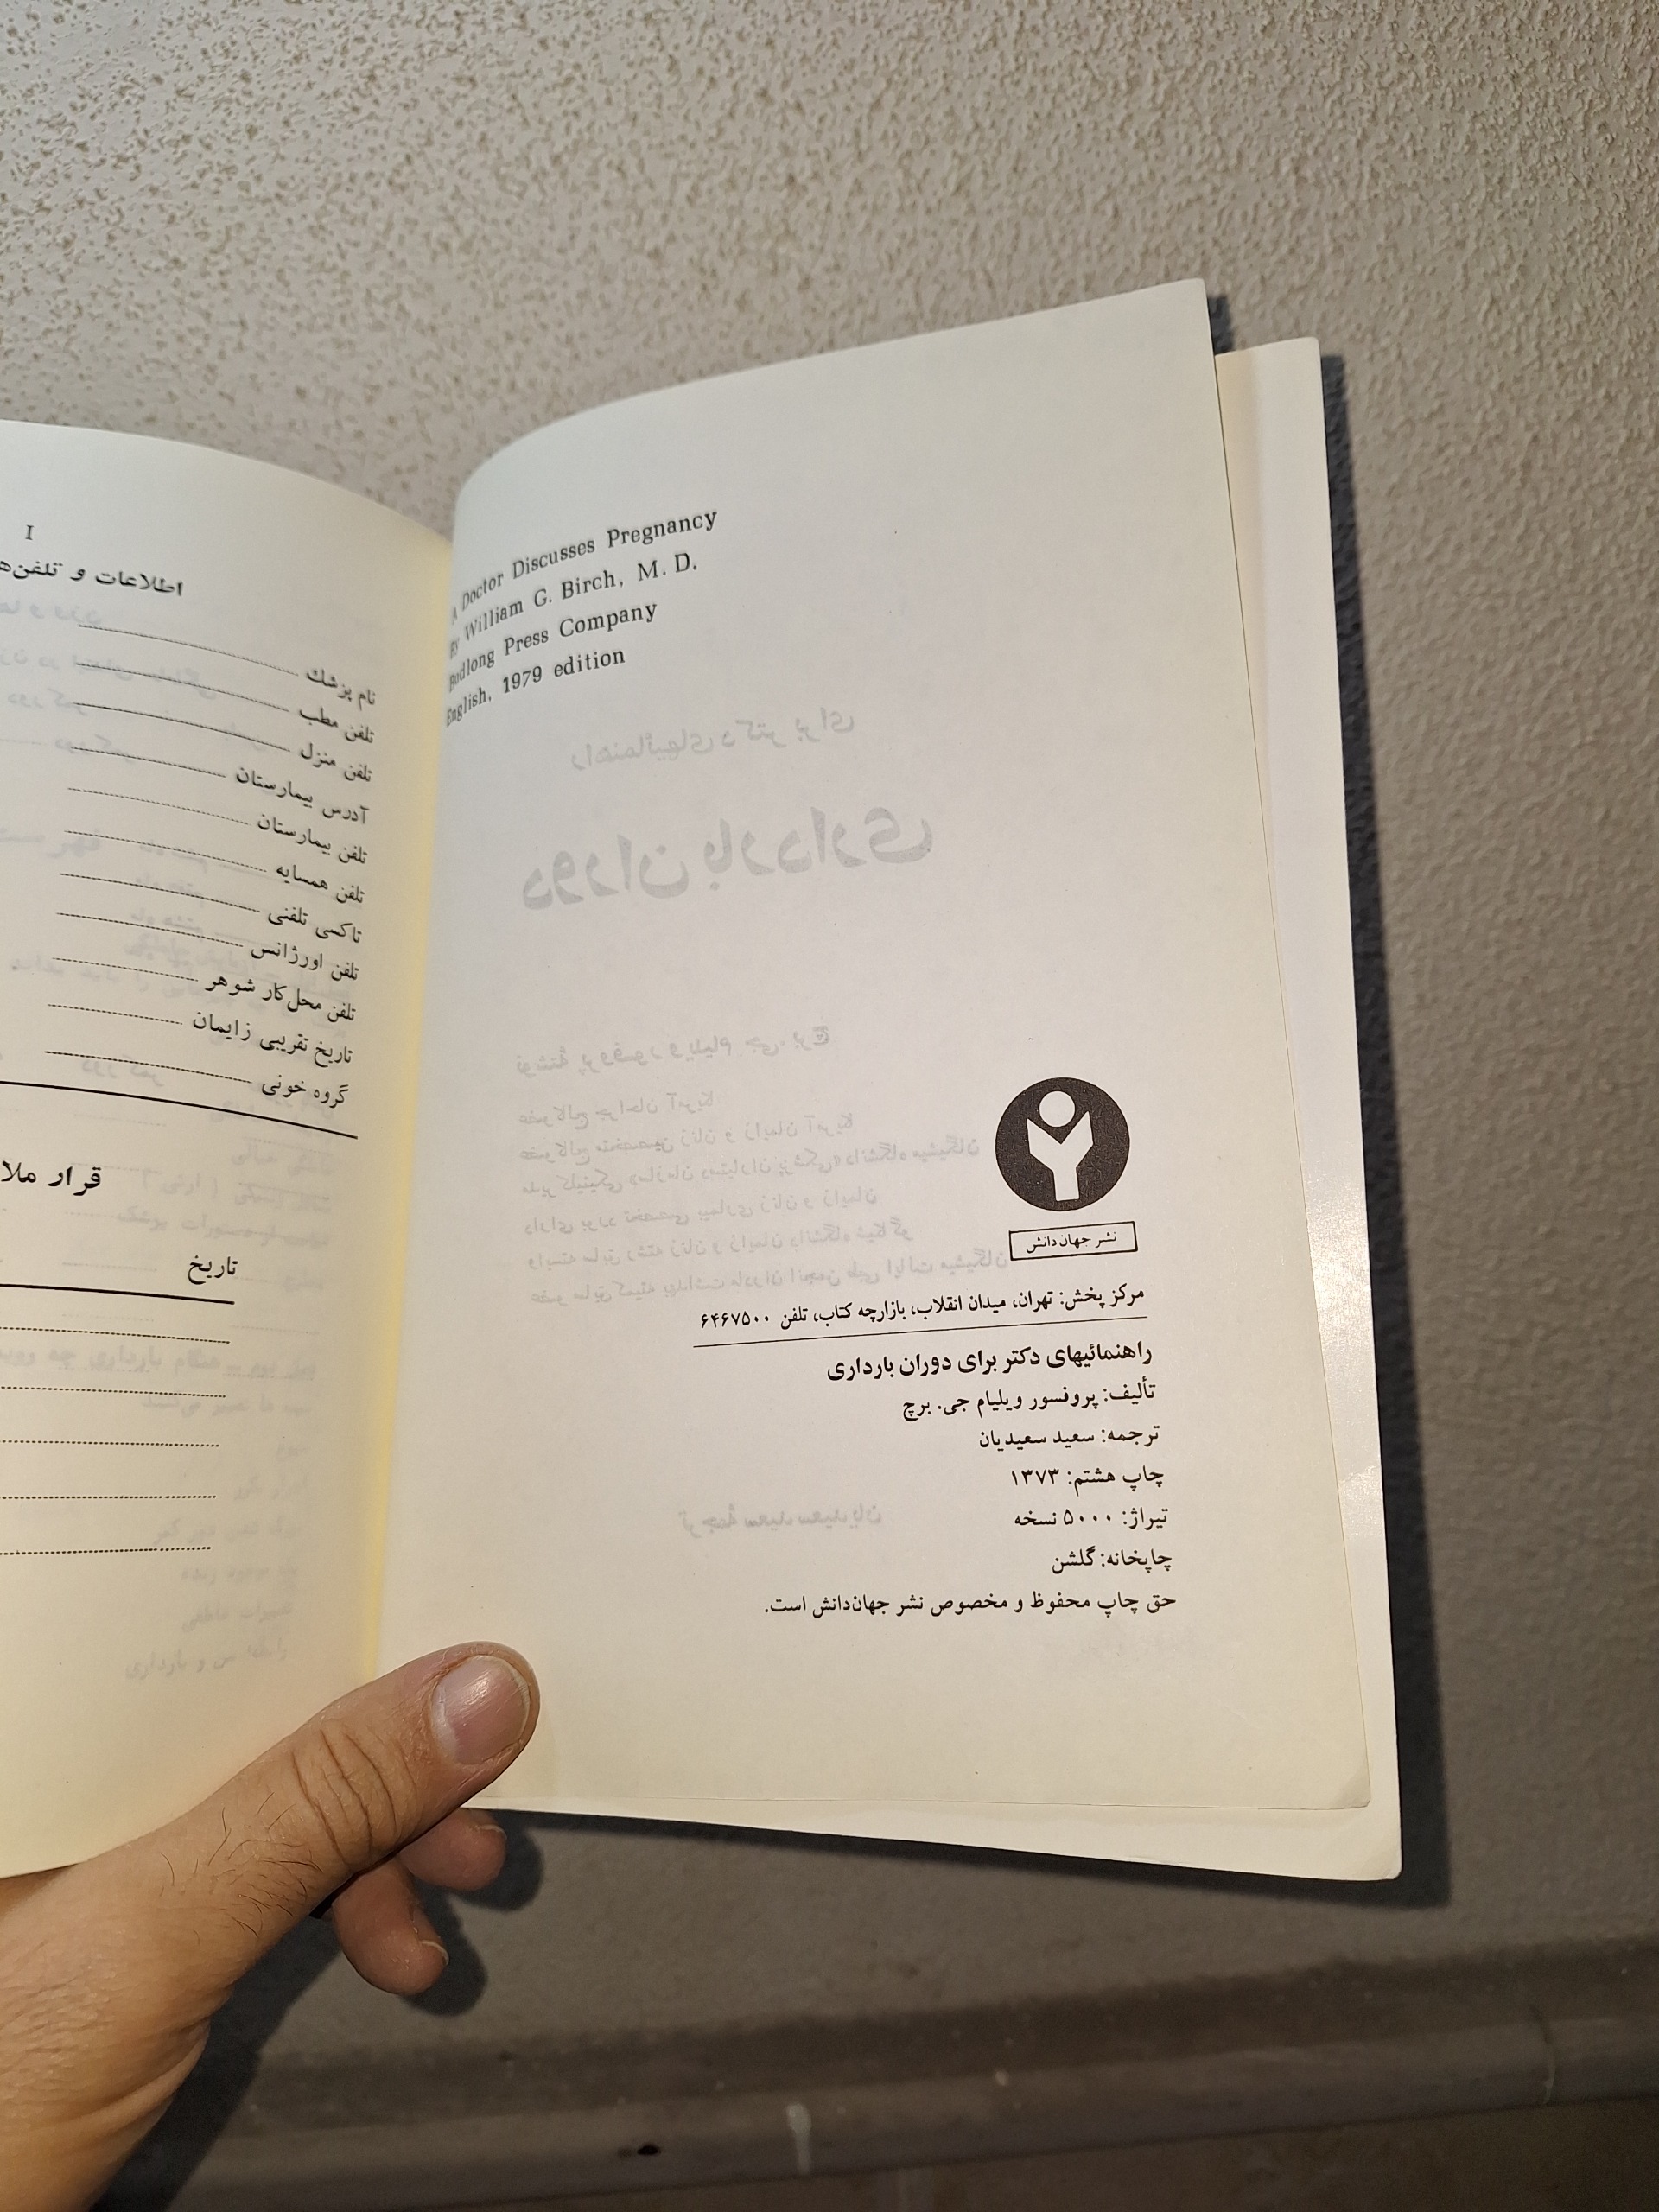 A Doctor Discusses Pregnancy
By William G. Birch, M. D.
Budlong Press Company
English, 1979 edition
نشر جهان‌دانش
مرکز پخش: تهران، میدان انقلاب، بازارچه کتاب، تلفن ۶۴۶۷۵۰۰
راهنمائیهای دکتر برای دوران بارداری
تألیف: پروفسور ویلیام جی. برچ
ترجمه: سعید سعیدیان
چاپ هشتم: ۱۳۷۳
تیراژ: ۵۰۰۰ نسخه
چاپخانه: گلشن
حق چاپ محفوظ و مخصوص نشر جهان‌دانش است.
I
اطلاعات و تلفن‌ه
نام پزشك
تلفن مطب
تلفن منزل
آدرس بیمارستان
تلفن بیمارستان
تلفن همسایه
تاکسی تلفنی
تلفن اورژانس
تلفن محل‌کار شوهر
تاریخ تقریبی زایمان
گروه خونی
قرار ملا
تاریخ